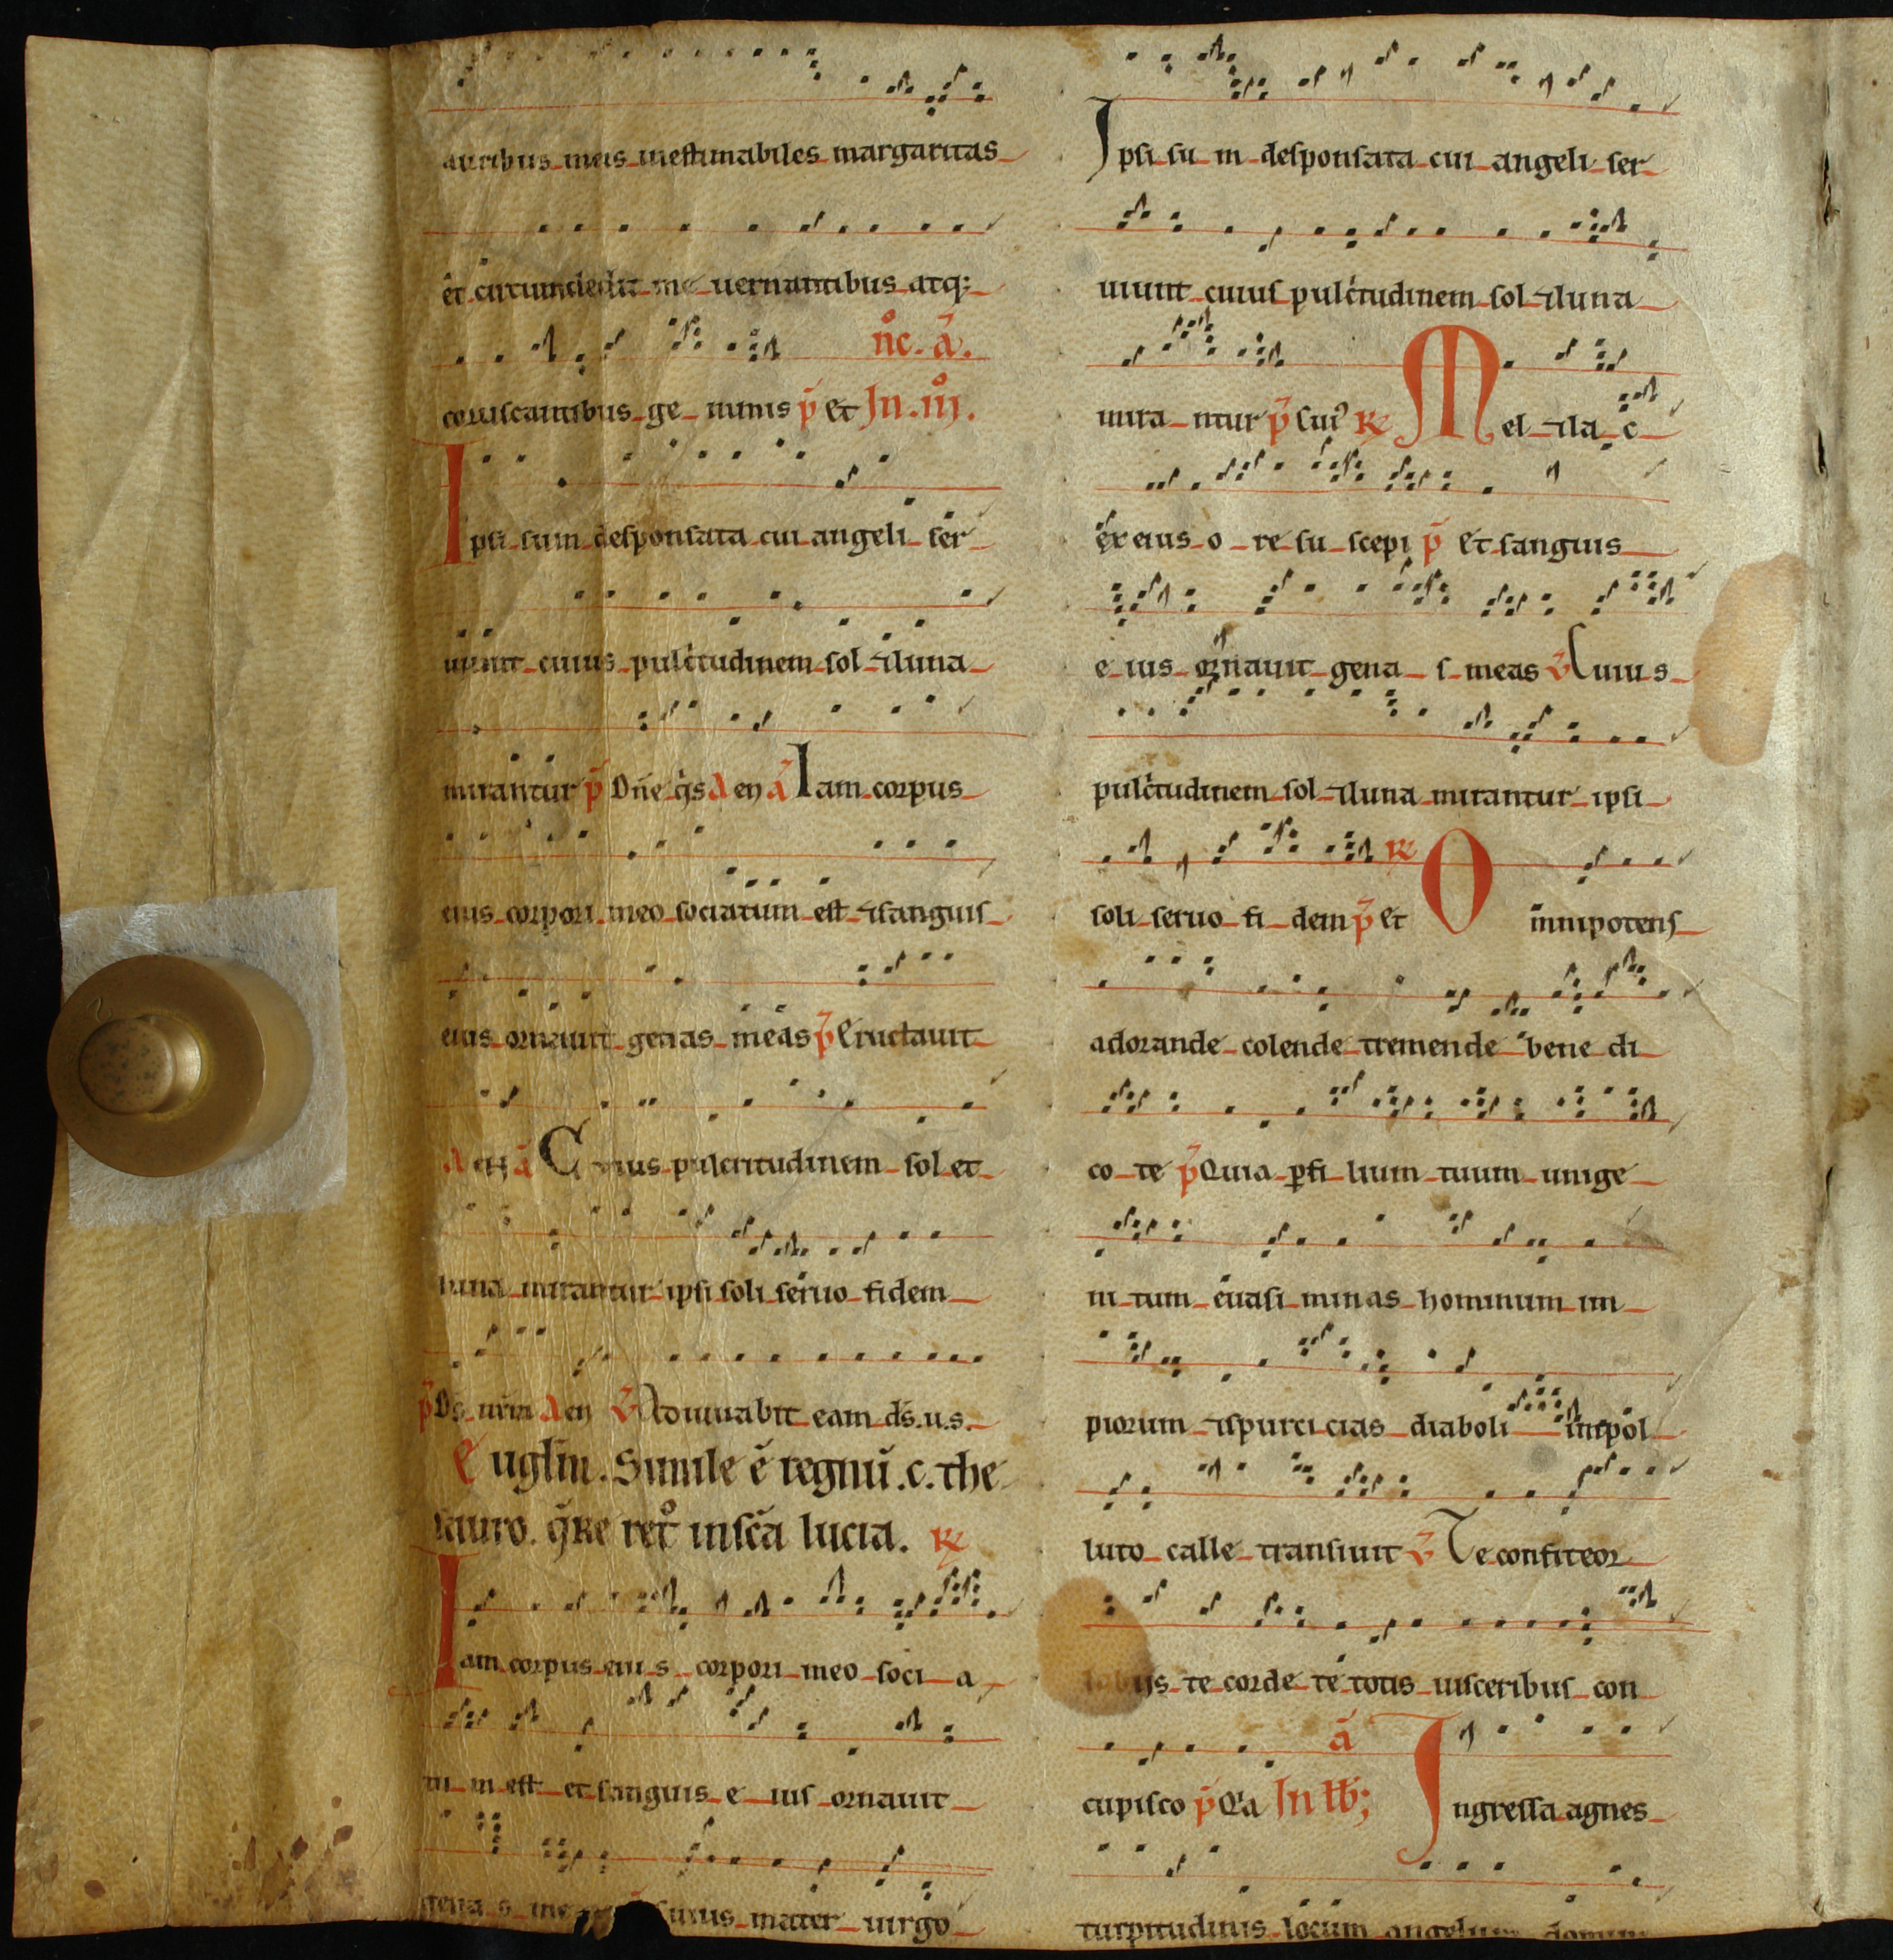 auribus meis inestimabiles margaritas
et circumdedit me uernantibus atq;
coruscantibus ge mmis p̄ Et In .iij. nͦc. ā.
Ipsi sum desponsata cui angeli ser
uiunt cuius pulcritudinem sol ⁊ luna
mirantur p̄ Dn̄e q̇s A eu a Iam corpus
eius corpori meo sociatum est ⁊ sanguis
eius ornauit genas meas p̄ Eructauit
A eu a Cuius pulcritudinem sol et
luna mirantur ipsi soli seruo fidem
p̄ Ds nr̄m A eu v̄ Adiuuabit eam ds̄.u.s.
Euglm̄. Simile ē regnū .c. the
sauro. q̄re retͦ in sc̄a lucia. ℟
Iam corpus eiu s corpori meo soci a
tu m est et sanguis e ius ornauit
gena s me cuius mater uirgo
Ipsi su m desponsata cui angeli ser
uiunt cuius pulcritudinem sol ⁊ luna
mira ntur p̄ Cuiꝰ ℟ Mel ⁊ la c
ex eius o re su scepi p̄ Et sanguis
e ius ornauit gena s meas v̄ Cuius
pulcritudinem sol ⁊ luna mirantur ipsi
soli seruo fi dem p̄ Et ℟ Omnipotens
adorande colende tremende bene di
co te p̄ Quia ꝑ fi lium tuum unige
ni tum euasi minas hominum im
piorum ⁊ spurcicias diaboli impol
luto calle transiuit v̄ Te confiteor
labijs te corde te totis uisceribus con
cupisco p̄ Qͥa In lb̄; ā Ingressa agnes
turpitudinis locum angelum domini